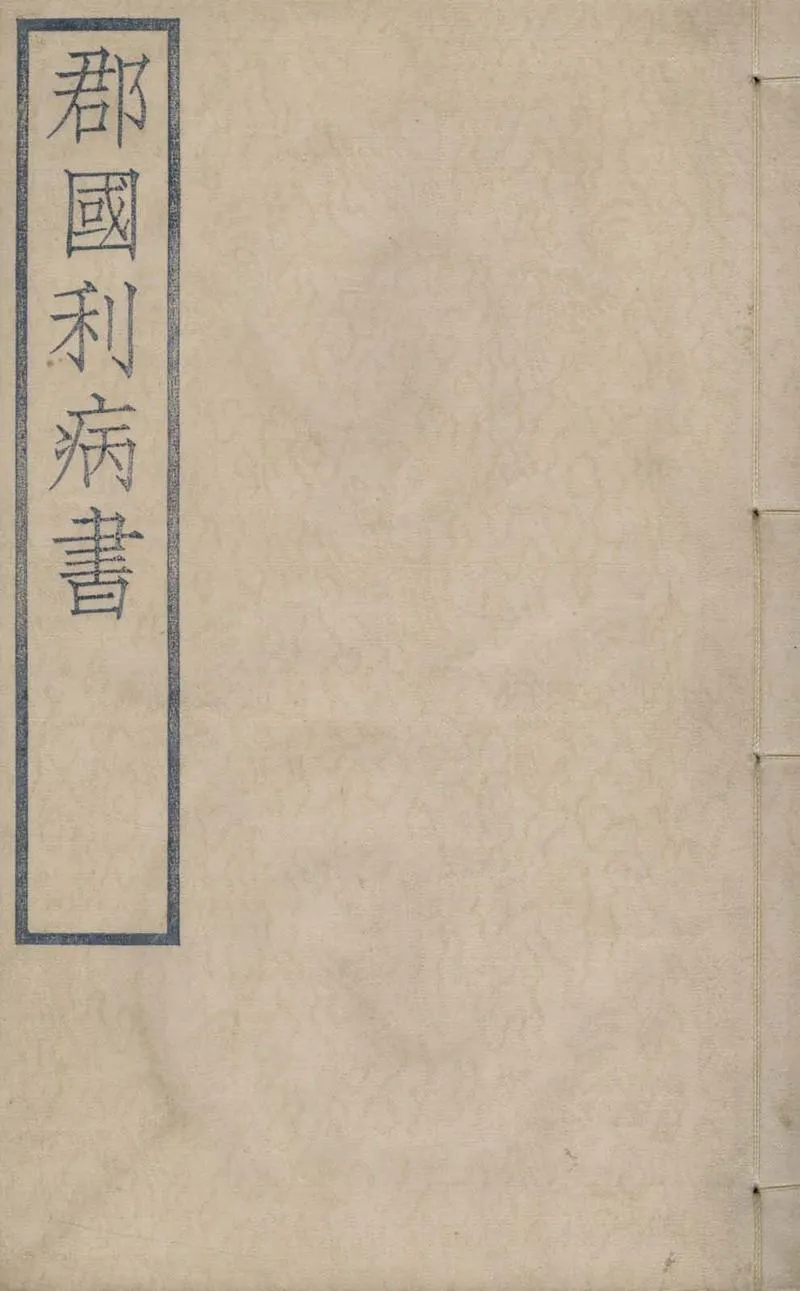 郡國利病書